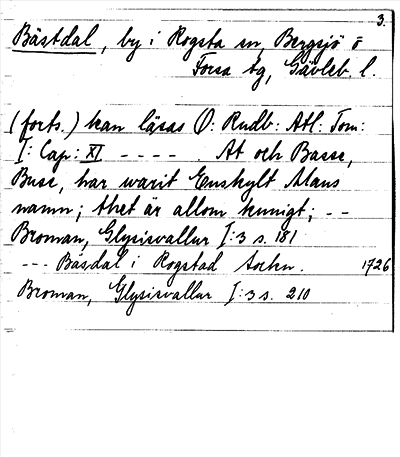 3.
Bästdal, by i Rogsta sn, Bergsjö o
Forsa tg, Gävleb. l.
(forts.) kan läsas O: Rudb: Atl: Tom:
I: Cap: XI - - - - At och Basse,
Buse, har warit Enskylt Mans
namn; thet är allom kunigt; - -
Broman, Glysisvallur I:3 s. 181
- - - Båsdal i Rogstad Sochn. 1726
Broman, Glysisvallur I:3 s. 210